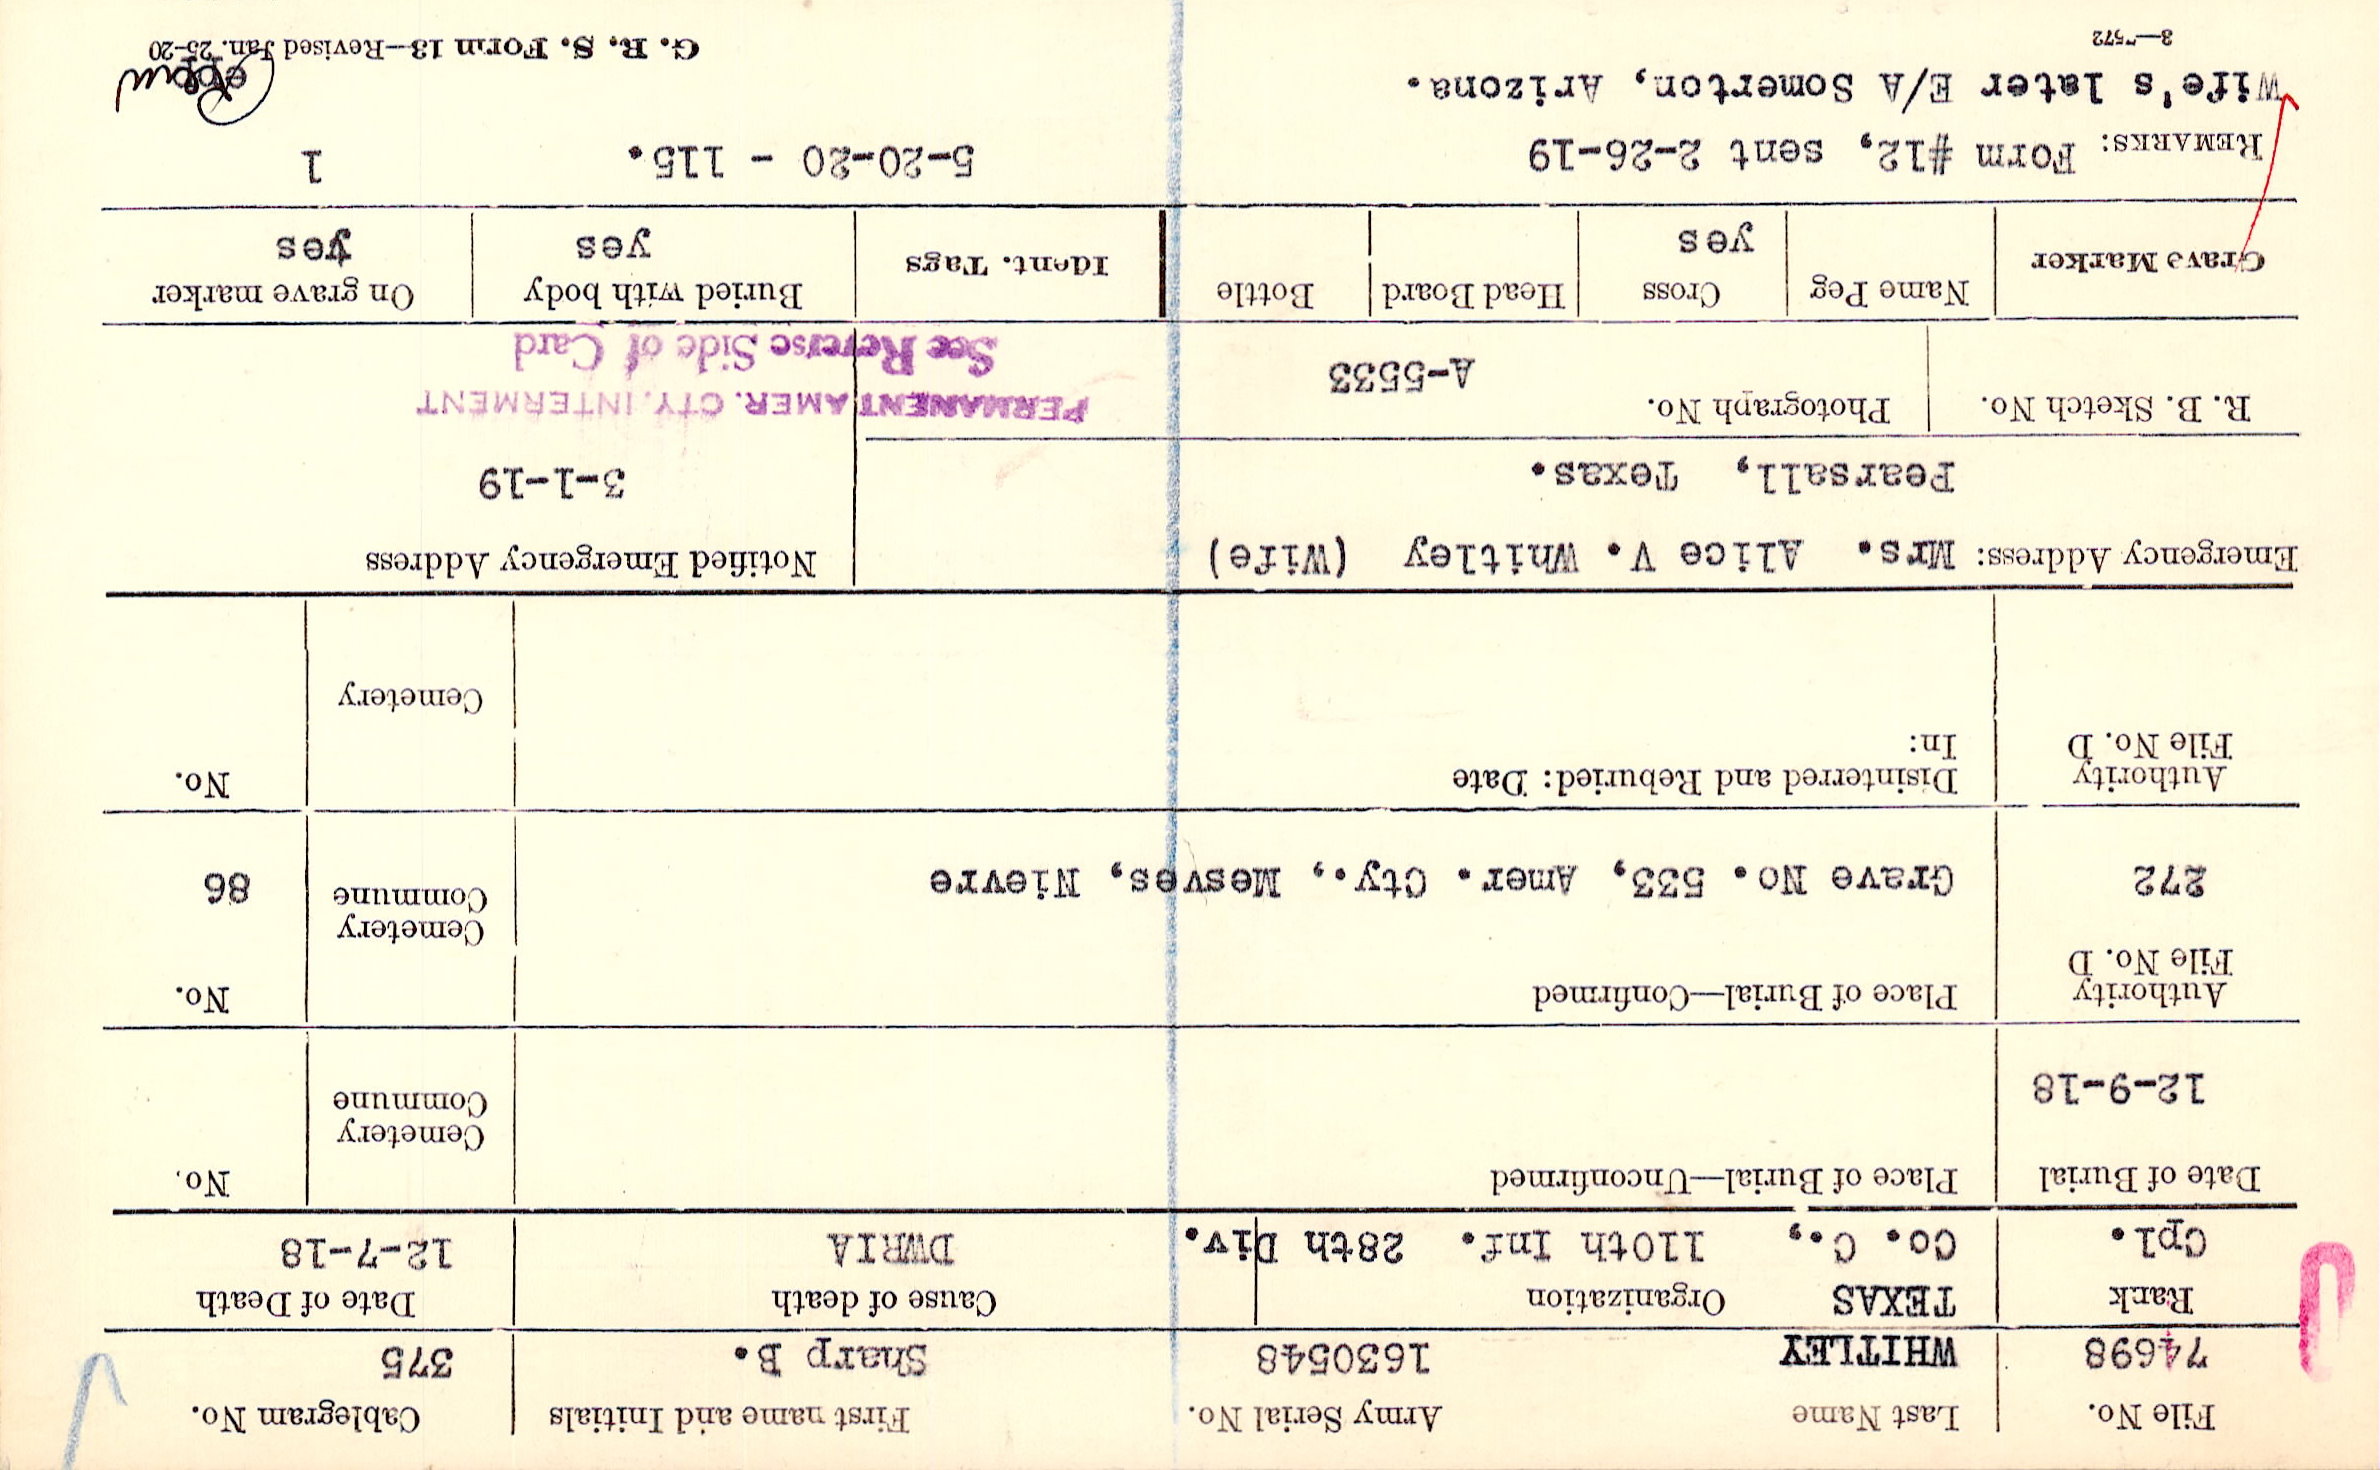 File No. Last Name Army Serial No. First name and Initials Cablegram No.
74698 WHITLEY 1630548 Sharp B. 375
Rank TEXAS Organization Cause of death Date of Death
Cpl. Co. C., 110th Inf. 28th Div. DWRIA 12-7-18
Date of Burial Place of Burial—Unconfirmed No.
12-9-18 Cemetery
Commune
Authority Place of Burial—Confirmed No.
File No. D
Cemetery
272 Grave No. 533, Amer. Cty., Mesves, Nievre Commune 86
Authority Disinterred and Reburied: Date No.
File No. D In:
Cemetery
Emergency Address: Mrs. Alice V. Whitley (Wife) Notified Emergency Address
Pearsall, Texas. 3-1-19
R. B. Sketch No. Photograph No. PERMANENT AMER. CTY. INTERMENT
A-5533 See Reverse Side of Card
Grave Marker Name Peg Cross Head Board Bottle Ident. Tags Buried with body On grave marker
yes yes yes
REMARKS: Form #12, sent 2-26-19 5-20-20 - 115. 1
Wife's later E/A Somerton, Arizona.
3—7572 G. R. S. Form 13—Revised Jan. 25-20